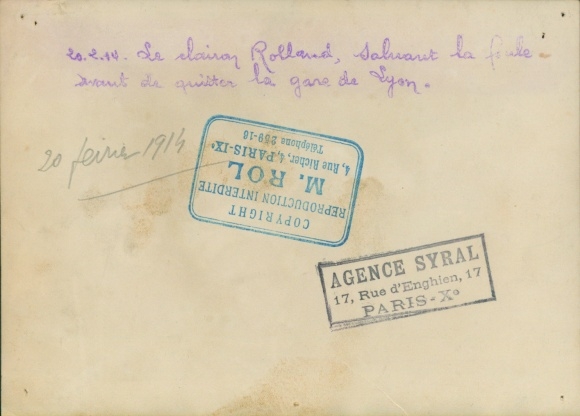 20.2.14. Le clairon Rolland, saluant la foule
avant de quitter la gare de Lyon.
20 février 1914
COPYRIGHT
REPRODUCTION INTERDITE
M. ROL
4, Rue Richer, 4, PARIS-IXe
Téléphone 289-18
AGENCE SYRAL
17, Rue d'Enghien, 17
PARIS-Xe